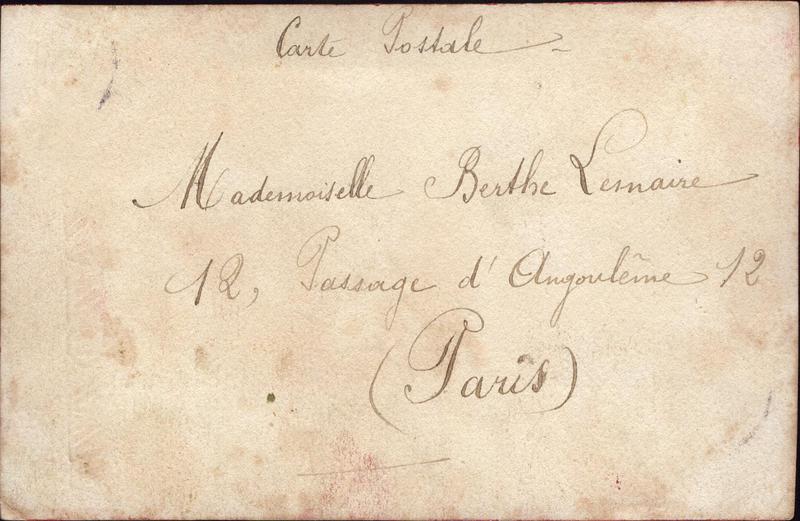 Carte Postale
Mademoiselle Berthe Lemaire
12, Passage d'Angoulême 12
(Paris)